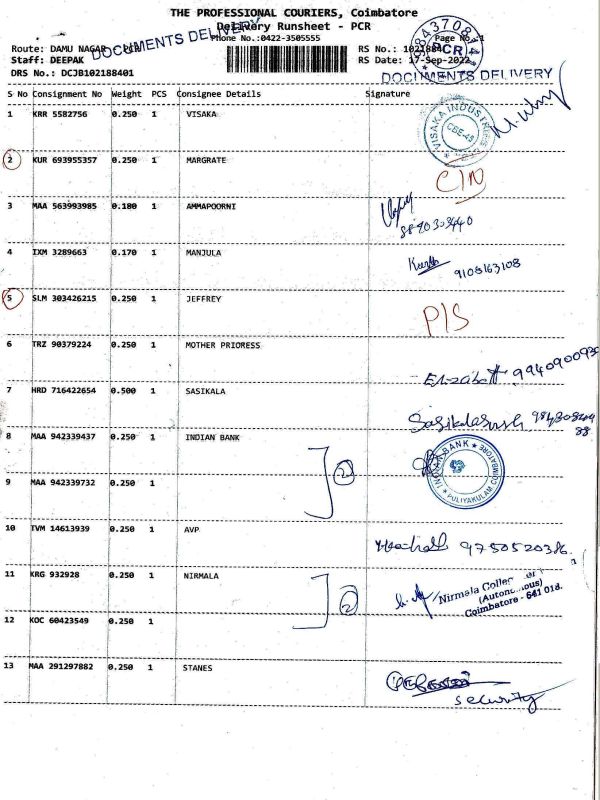 THE PROFESSIONAL COURIERS, Coimbatore
Delivery Runsheet - PCR
Phone No.:0422-3505555
Page No.:1
Route: DAMU NAGAR - PCR
Staff: DEEPAK
DRS No.: DCJB102188401
DOCUMENTS DELIVERY
RS No.: 10218840
RS Date: 17-Sep-2022
PCR
DOCUMENTS DELIVERY
S No Consignment No Weight PCS Consignee Details Signature
1 KRR 5582756 0.250 1 VISAKA
VISAKA INDUSTRIES
CBE-45
2 KUR 693955357 0.250 1 MARGRATE
C/N
3 MAA 563993985 0.180 1 AMMAPOORNI
4 IXM 3289663 0.170 1 MANJULA
9108163108
5 SLM 303426215 0.250 1 JEFFREY
P/S
6 TRZ 90379224 0.250 1 MOTHER PRIORESS
7 HRD 716422654 0.500 1 SASIKALA
8 MAA 942339437 0.250 1 INDIAN BANK
2
INDIAN BANK
PULIYAKULAM, COIMBATORE
9 MAA 942339732 0.250 1
10 TVM 14613939 0.250 1 AVP
9750520386
11 KRG 932928 0.250 1 NIRMALA
2
Nirmala College
(Autonomous)
Coimbatore - 641 018.
12 KOC 60423549 0.250 1
13 MAA 291297882 0.250 1 STANES
security